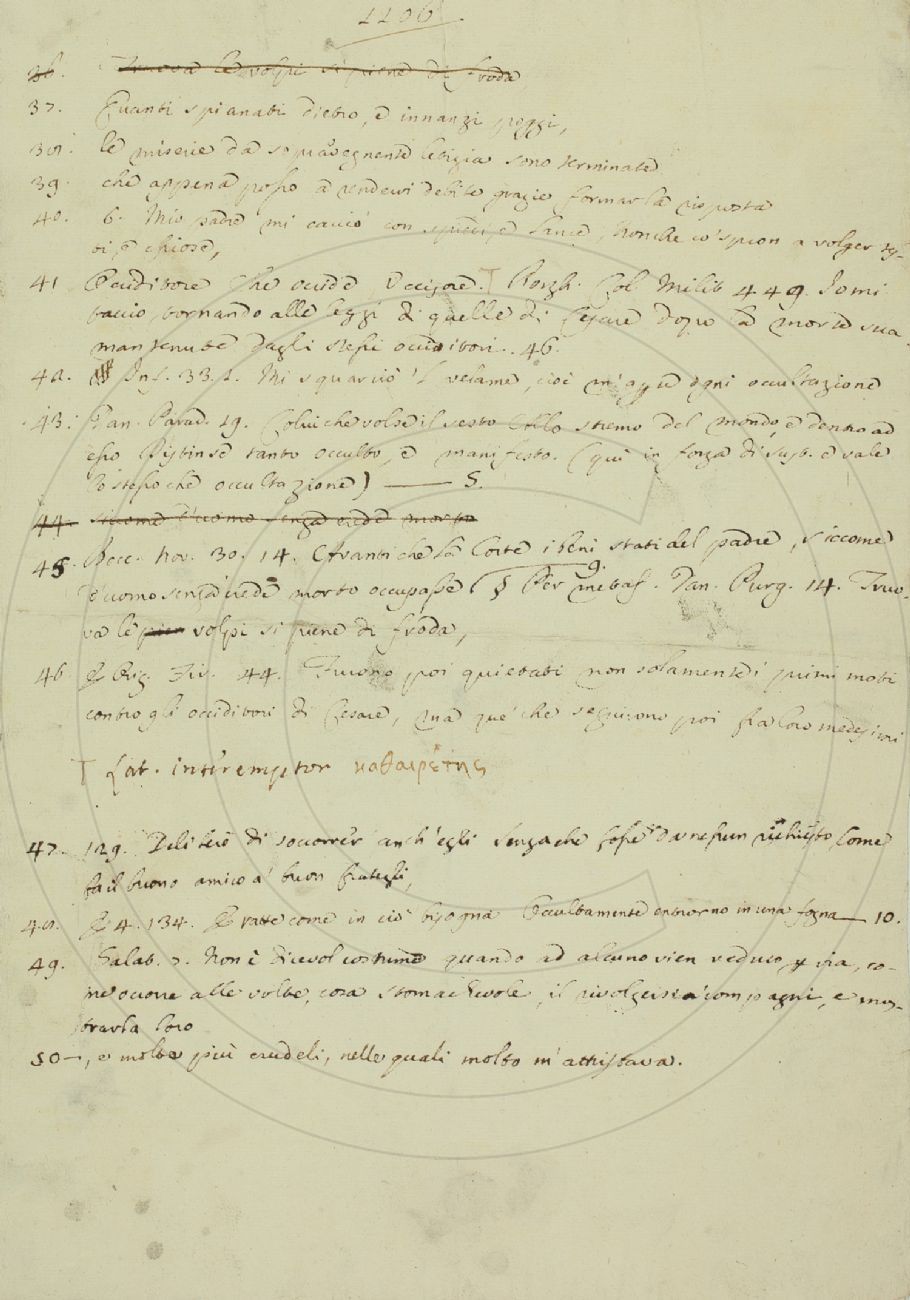 1106.
36. Truova le volpi sì piene di froda
37. Quanti spianati dietro, e innanzi poggi,
38. le miserie da sopravvegnente letizia sono terminate
39. che appena posso a rendervi debite grazie formar la risposta
40. 6. Mio padre mi cacciò con e lance, Nonche co' spron a volger
 e chiose,
41 Occiditore Che occide Uccisore. T Borgh. Col. Milit. 449. Io mi
taccio, tornando alle leggi di quelle di Cesare dopo la morte sua
mantenute dagli stessi occiditori. 46.
42. Inf. 33. Mi squarciò 'l velame, cioè m' ogni occultazione
43. Dan. Parad. 19. Colui che volse il sesto Allo stremo del mondo, e dentro ad
esso Distinse tanto occulto, e manifesto. (qui in forza di sust. e vale
lo stesso che occultazione) —— 5.
44. siccome d'uomo senza erede morto
45. Bocc. nov. 30. 14. Avanti che la Corte i beni stati del padre, siccome
d'uomo senza erede morto occupasse § Per metaf. Dan. Purg. 14. Truo-
va le volpi sì piene di froda,
46. Orig. Fir. 44. Furono poi quietati non solamente i primi moti
contro gli occiditori di Cesare, ma que' che seguirono poi fra loro medesimi
T Lat. interemptor καθαιρέτης
47. 129. Deliberò di soccorrer anch'egli Senza che fosse da nessun richiesto Come
fa il buono amico a' buon frategli,
48. E 4. 134. E ratte come in ciò bisogna Occultamente entrorno in una fogna — 10.
49. Galat. 7. Non è dicevol costume quando ad alcuno vien veduto per via, co-
me occorre alle volte, cosa stomachevole, il rivolgersi a' compagni, e mos-
trarla loro
50 —, e molte più crudeli, nelle quali molto m'attristava.